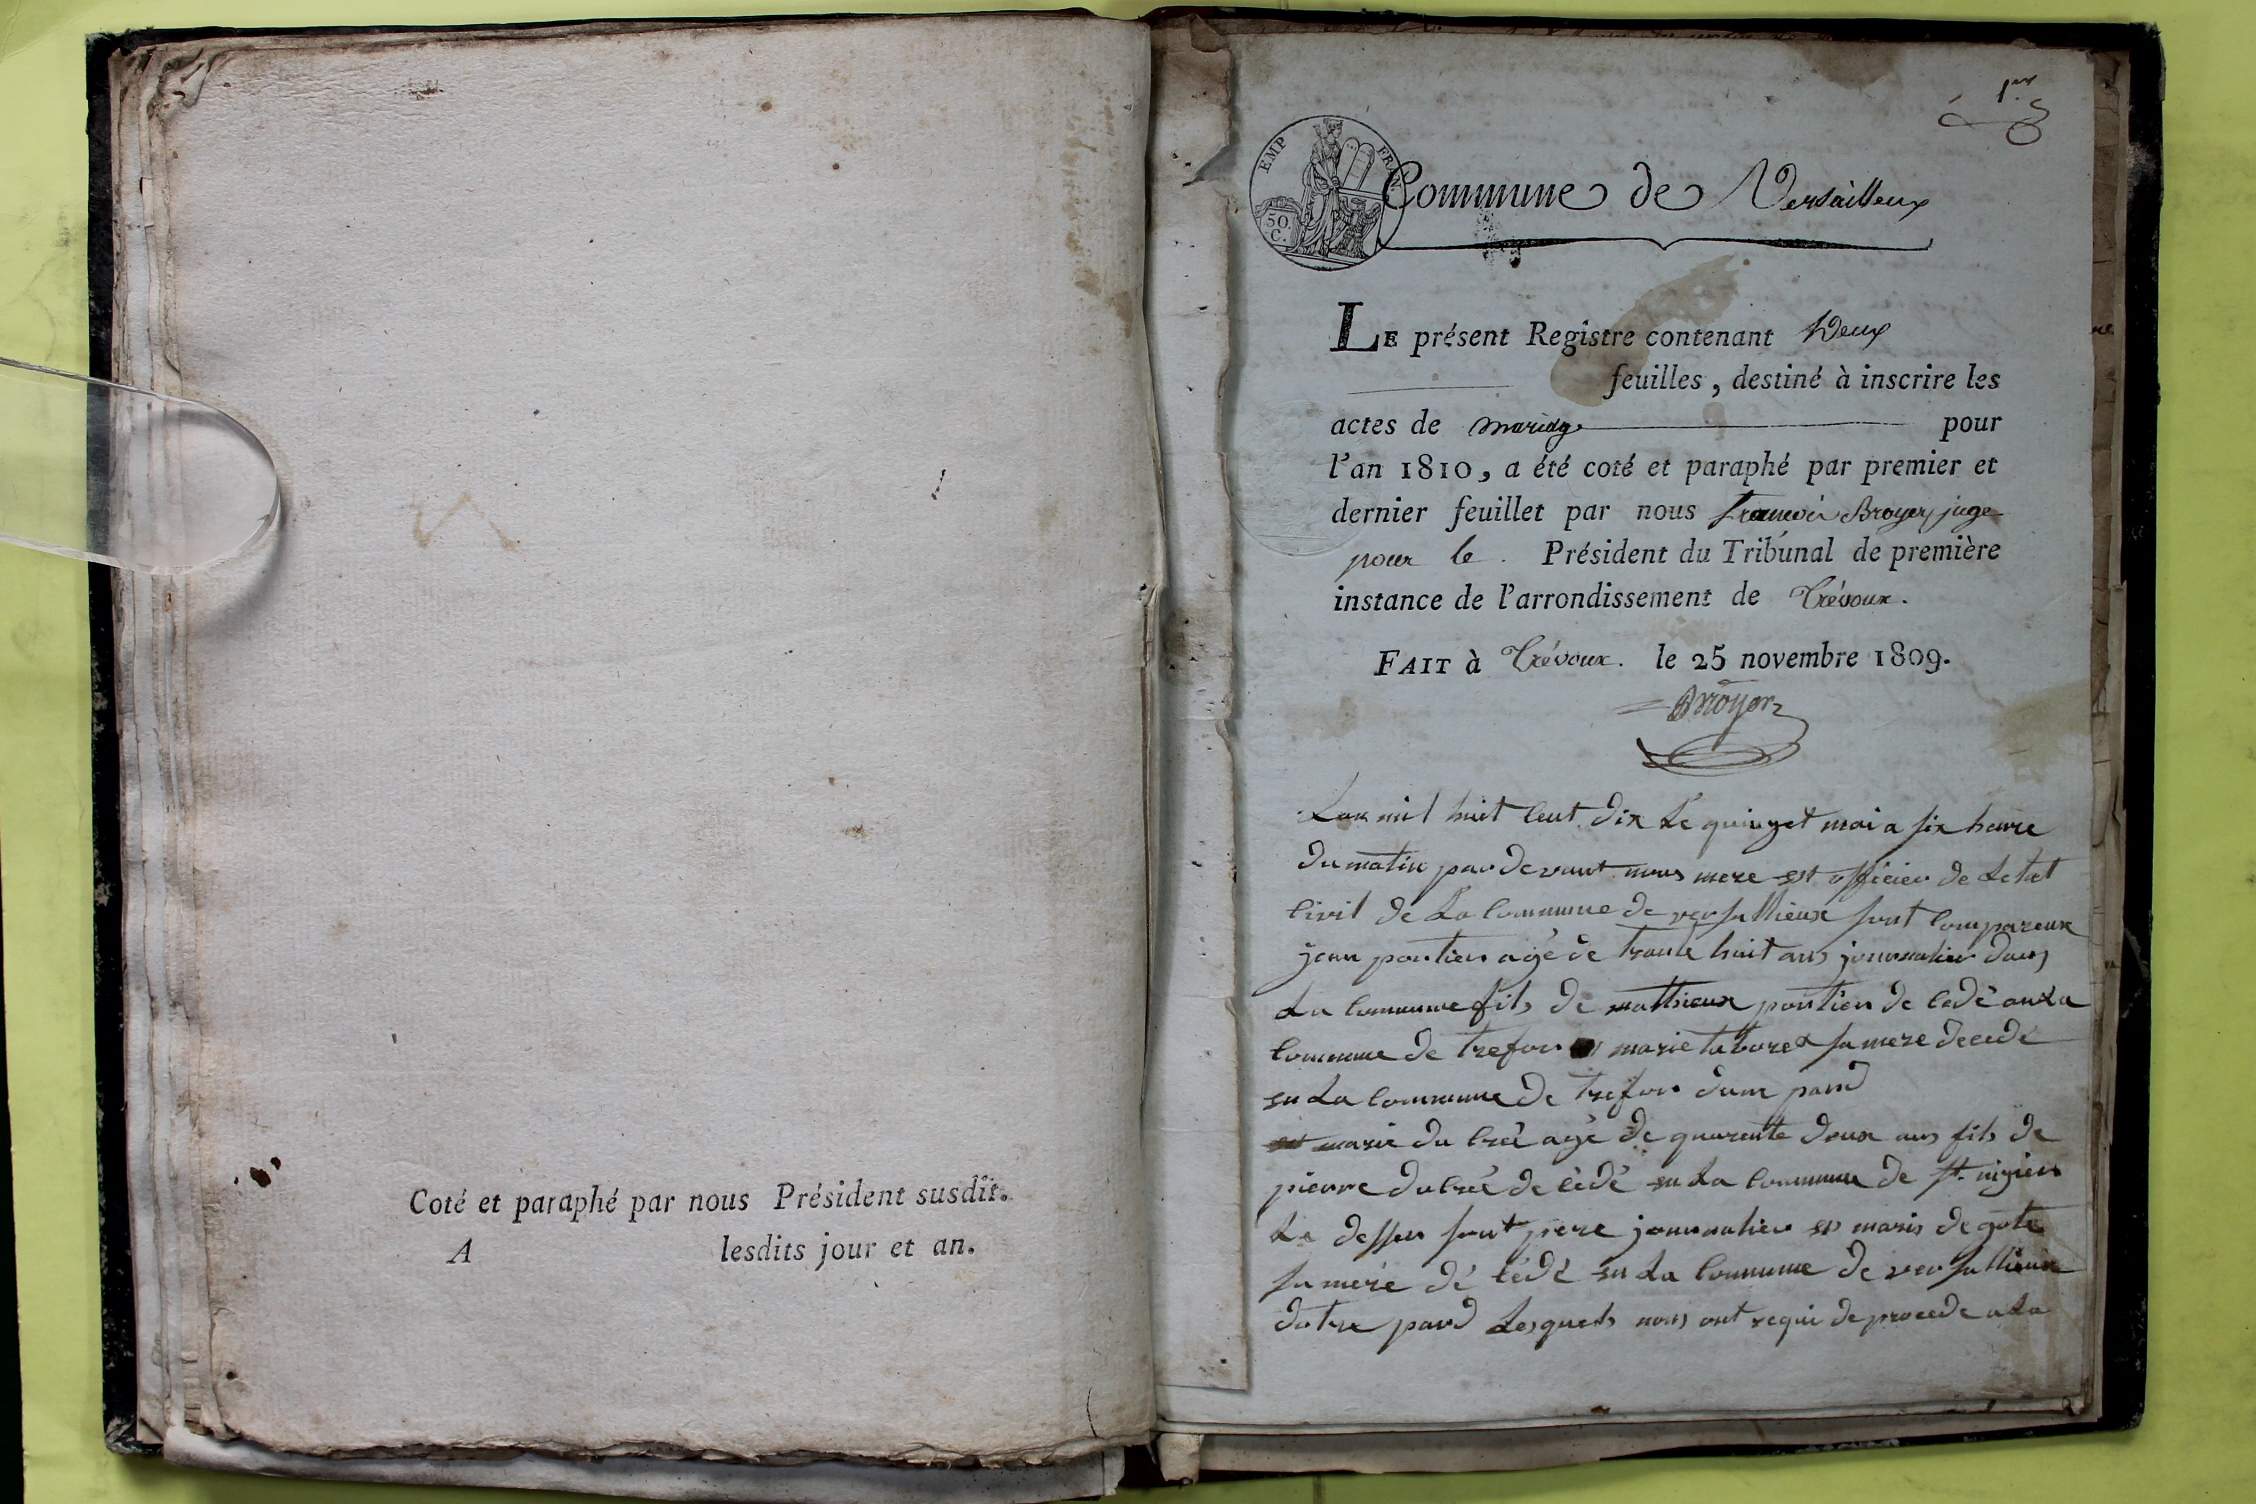 Coté et paraphé par nous Président susdit.
A lesdits jour et an.
1er
EMP FRAN.
50 C.
Commune de Versailleux
LE présent Registre contenant Deux
feuilles, destiné à inscrire les
actes de mariage pour
l'an 1810, a été coté et paraphé par premier et
dernier feuillet par nous francois Broyer juge
pour le Président du Tribunal de première
instance de l'arrondissement de Trévoux.
FAIT à Trévoux. le 25 novembre 1809.
Broyer
Lan mil huit Cent dix Le quinzet mai a six heure
du matin par devant nous mere est officier de Letat
Civil de La Commune de versallieux sont Compareux
jean pontien agé de trante huit ans journalier dans
La Commune fils de mathieux pontien de Cedé anla
Commune de trefor marie sa mere decedé
en La Commune de trefor dune pard
marie du Cré agé de quarente deux ans fils de
pierre duCré de Cédé en La Commune de st. nizier
Le desser sont pere journalier es marie de gote
sa mere dé Cédé en La Commune de versallieux
dotre pard Lesquels nous ont requi de procede a La